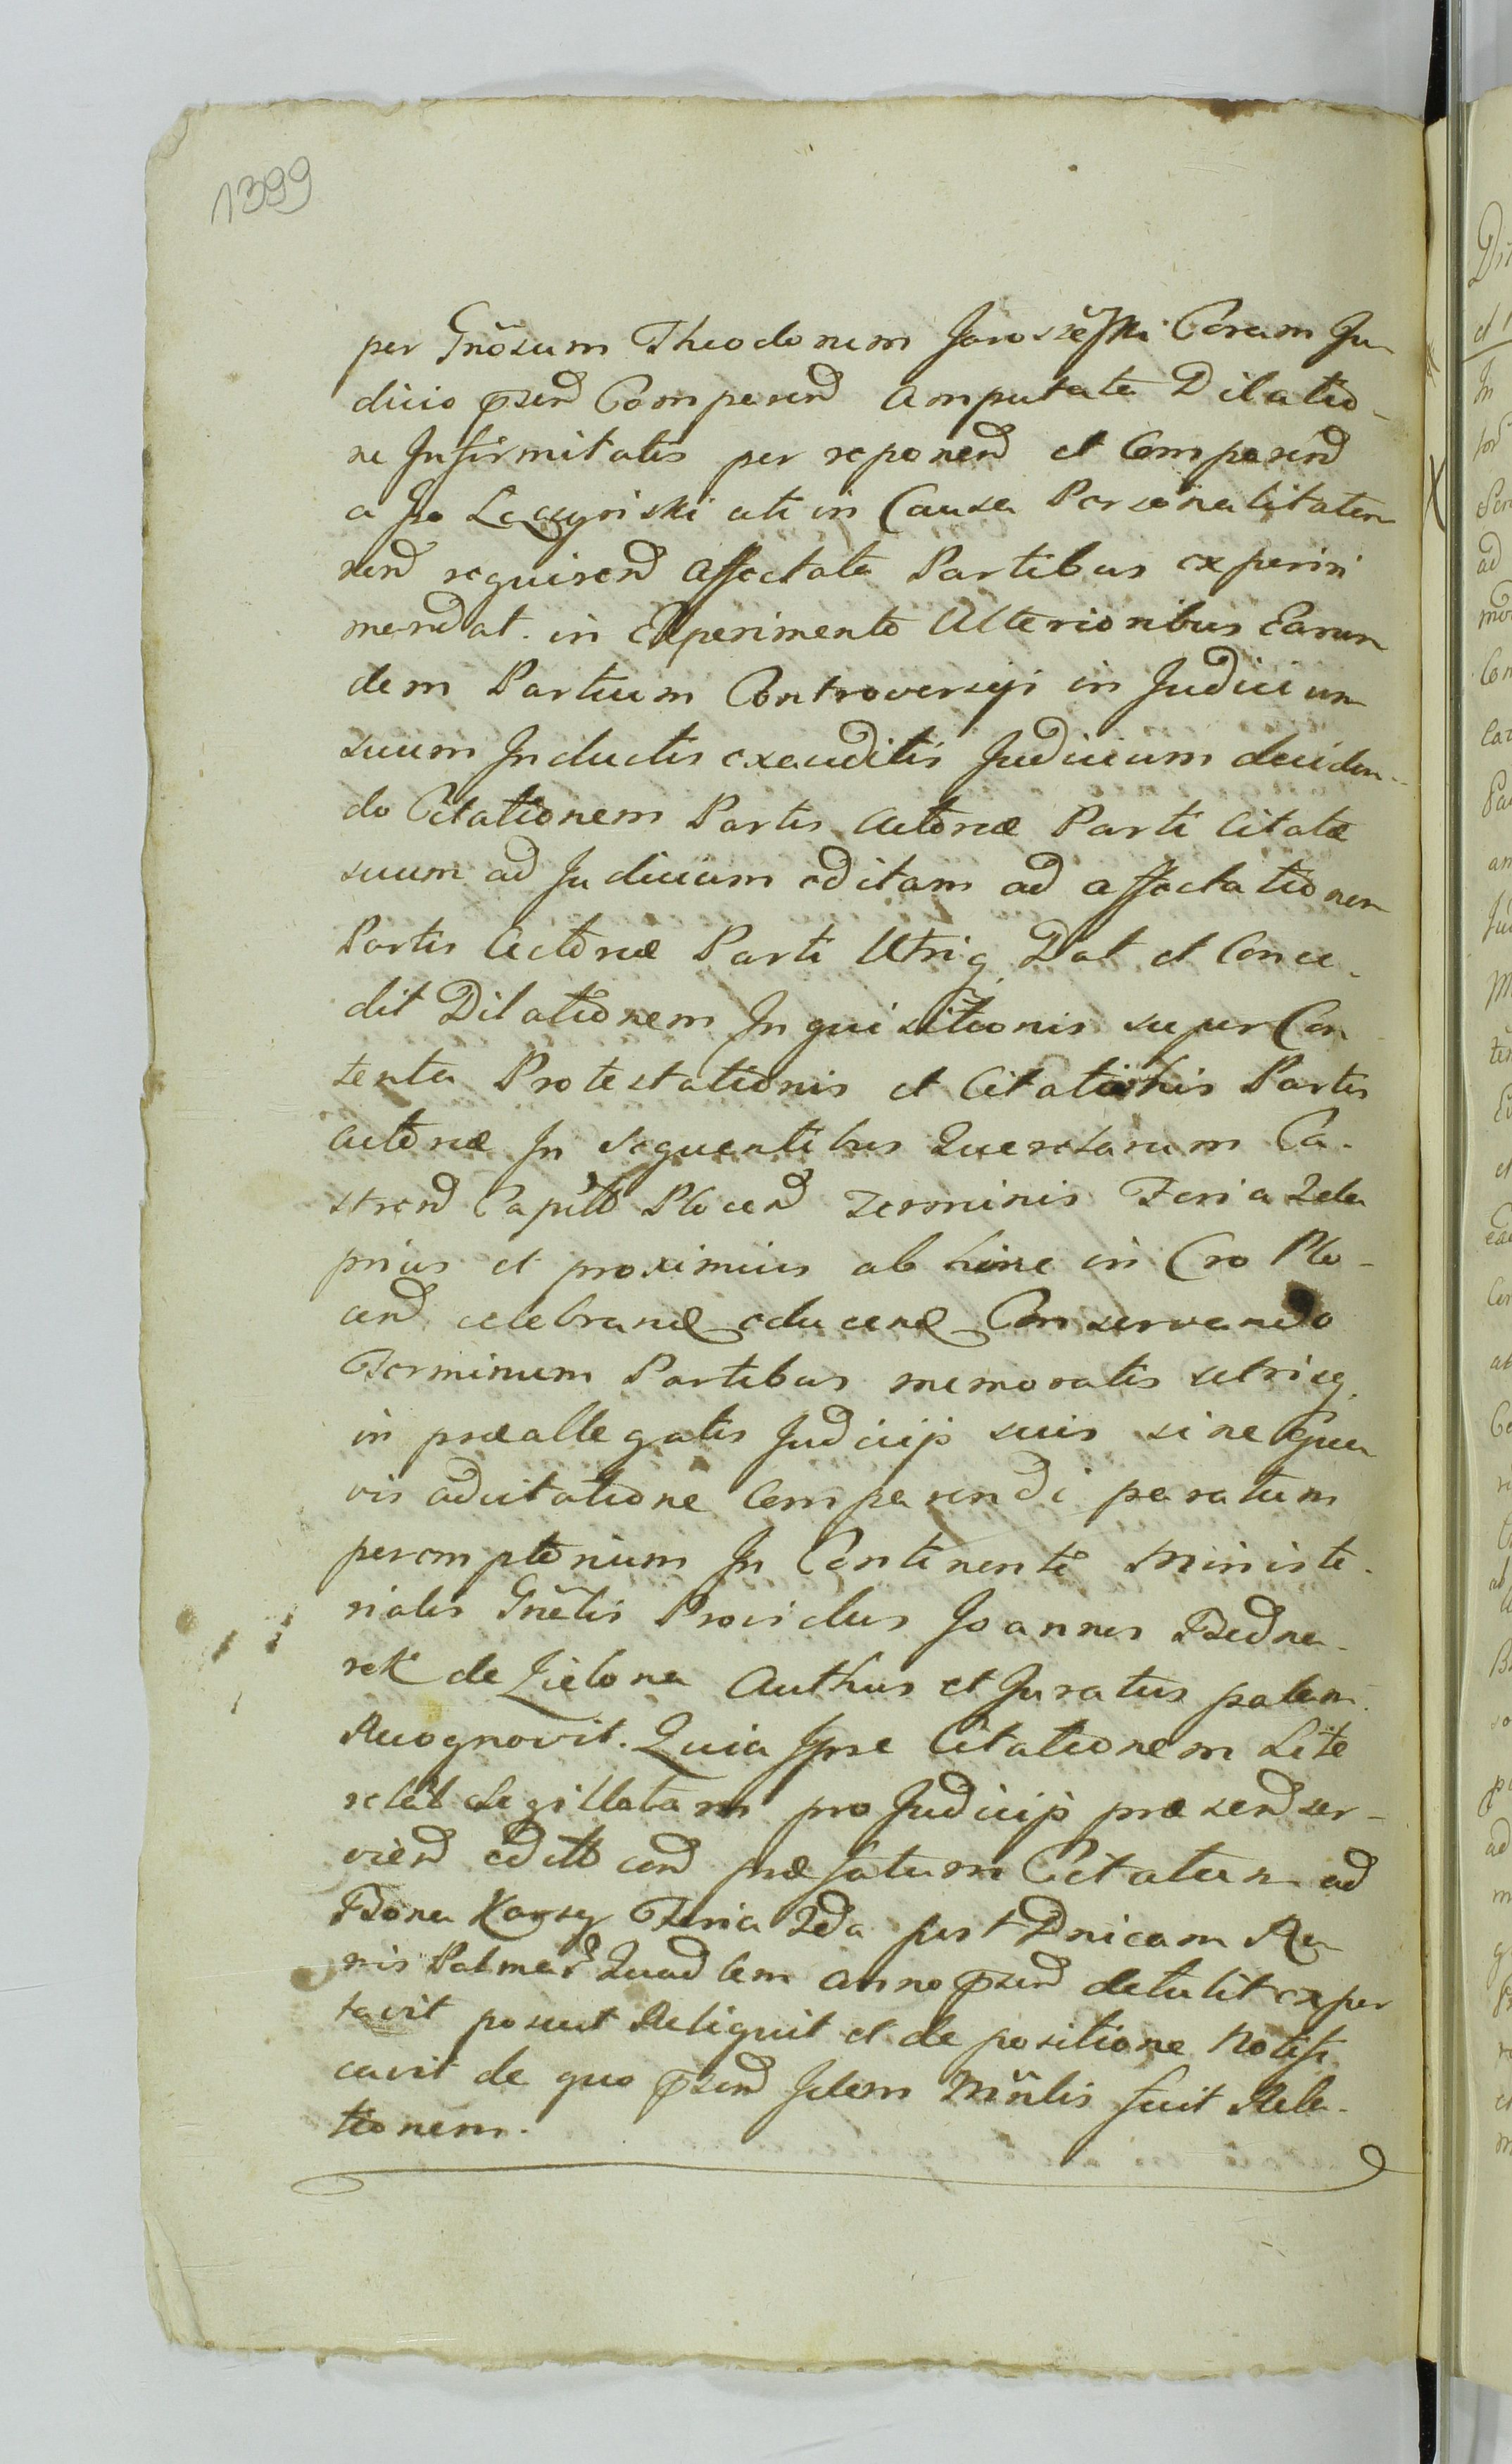 1399
per Gnõsum Theodorum Jaroszewski Coram Ju-
dicio pszend Comparend amputata Dilatio-
ne Infirmitatis per reponend et Comparend
a Jro Leczynski uti in Causa Personalitatem
non requirend affectata Partibus experiri
mandat. in Experimento Ulterioribus Earun
dem Partium Controversys in Judicium
suum Inductis exauditis Judicium deciden-
do Citationem Partis Actoreæ Parti Citatæ
suum ad Judicium editam ad affectationem
Partis Actoreæ Parti Utriq Dat et Conce-
dit Dilationem Inquisitionis super Con
tenta Protestationis et Citationis Partis
Actoreæ In sequentibus Querelarum Ca-
strend Capitlb Plocend Terminis Feria 2da
prius et proximius ab hinc in Cro Plo-
cend celebrand educend Conservando
Terminum Partibus memoratis utrisq
in præallegatis Judicijs suis sine qua
vis adcitatione Comparendi paratum
peremptorium In Continenti Ministe-
rialis Gnẽlis Providus Joannes Bedna-
rek de Zielona Authus et Juratus palam
Recognovit. Quia Ipse Citationem Lite
ralit Sigillatam pro Judicijs præsend ser-
viend editt cond præfatum Citatum ad
Bona Karsy Feria 2da post Dnicam Ra
mis Palmar Quadlem anno pszend detulit expor
tavit posuit Reliquit et de positione Notifi
cavit de quo pszend Idem Mñlis fuit Rela-
tionem.
Dii
et
In
ad
Con
Jud
ad